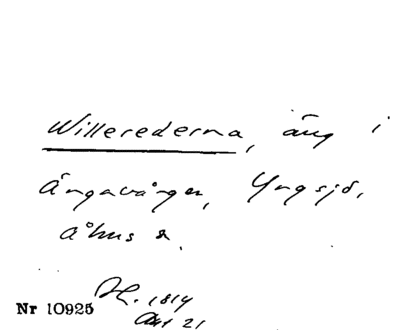 Willerederna, äng i
Ängavången, Yngsjö,
Åhus s.
H. 1814
Akt 21
Nr 10925